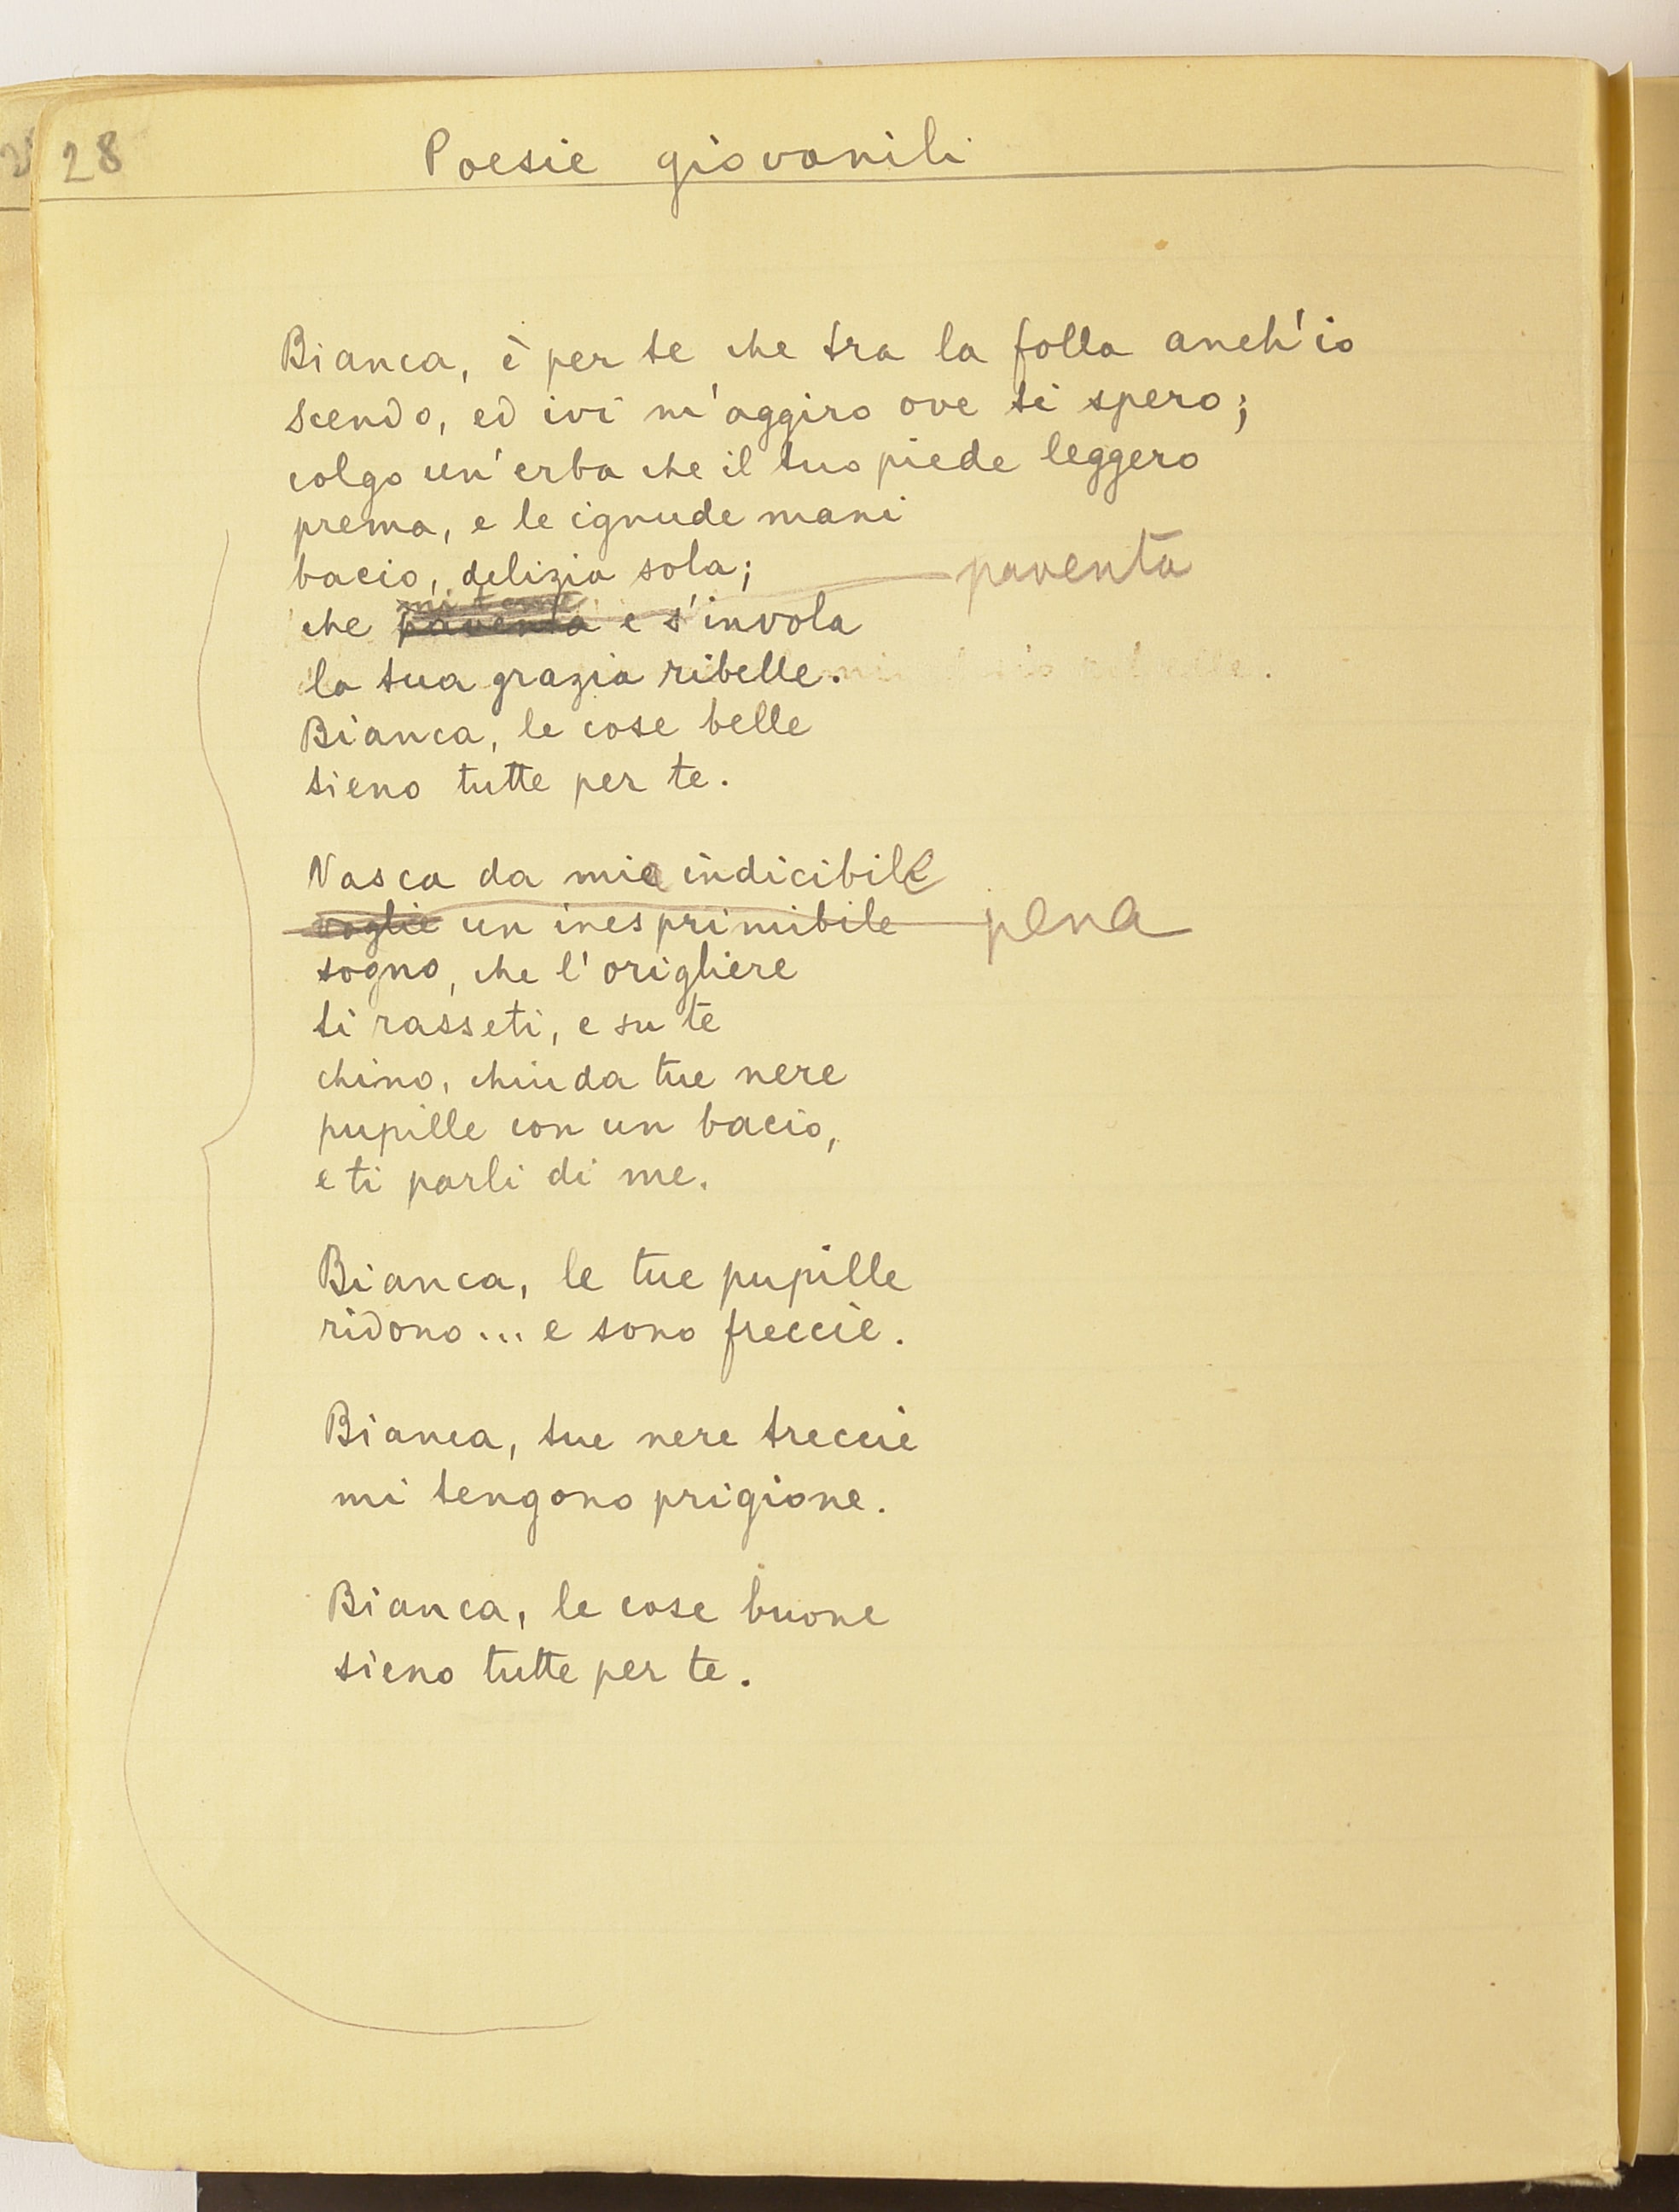 28 Poesie giovanili
Bianca, è per te che tra la folla anch'io
scendo, ed ivi m'aggiro ove ti spero;
colgo un'erba che il tuo piede leggero
prema, e le ignude mani
bacio, delizia sola;
paventa
mi teme
che paventa e s'invola
la tua grazia ribelle.
Bianca, le cose belle
sieno tutte per te.
Nasca da mia indicibile
voglie un inesprimibile pena
sogno, che l'origliere
ti rasseti, e su te
chino, chiuda tue nere
pupille con un bacio,
e ti parli di me.
Bianca, le tue pupille
ridono... e sono freccie.
Bianca, tue nere treccie
mi tengono prigione.
Bianca, le cose buone
sieno tutte per te.